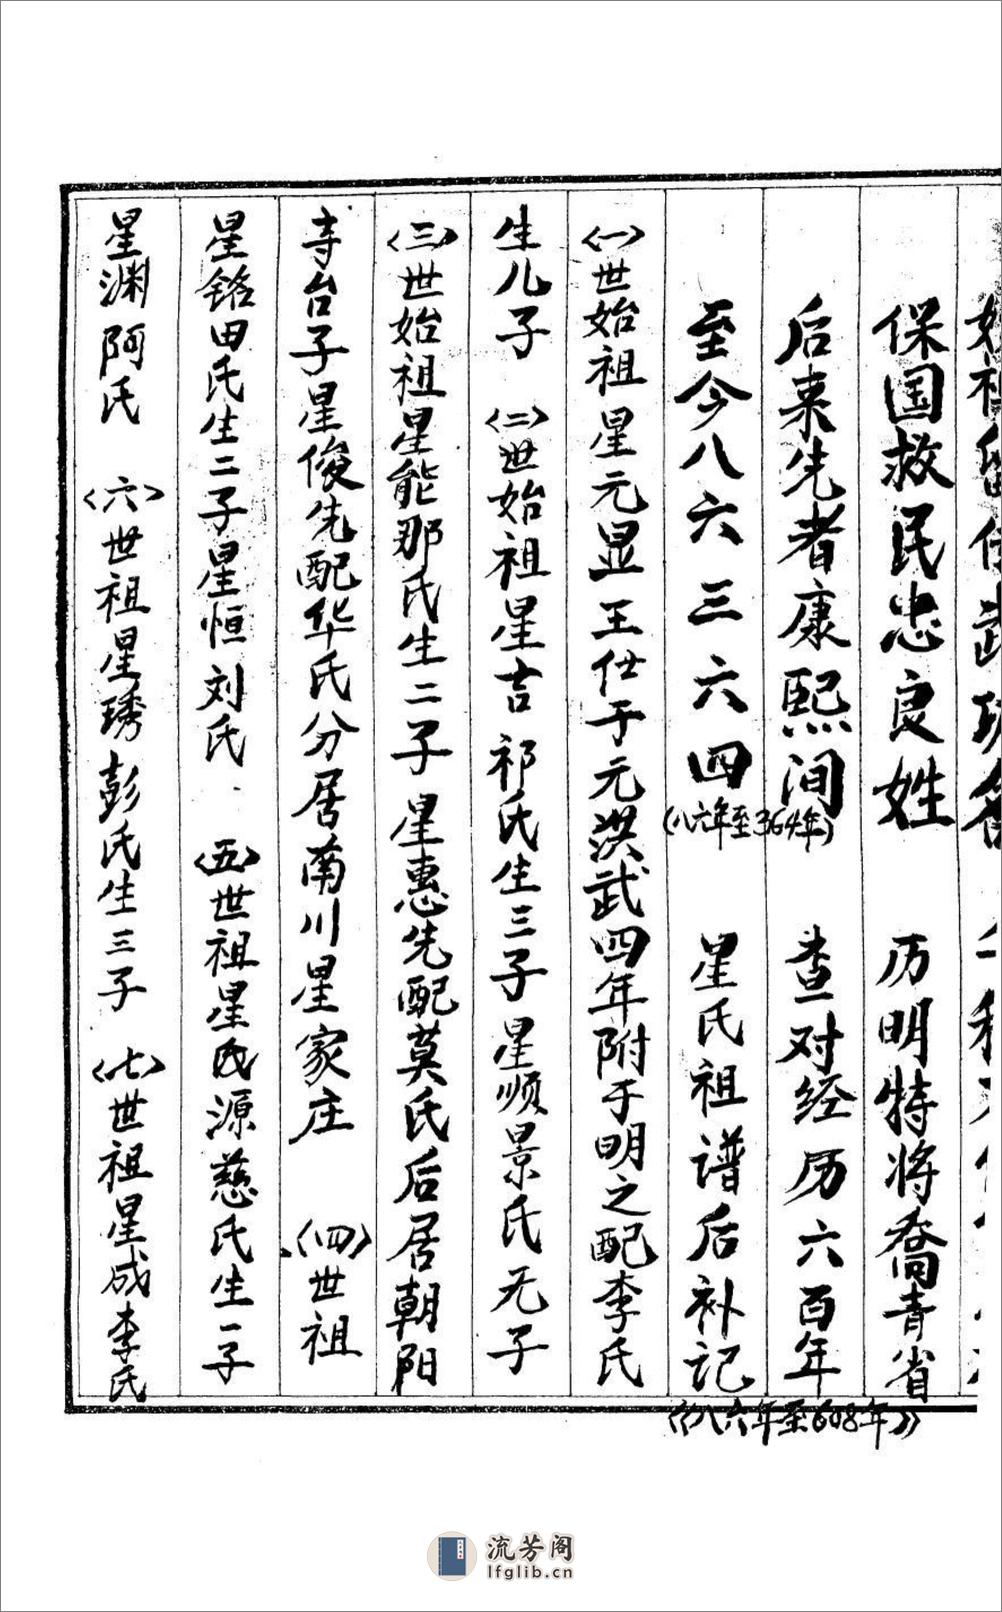 保国救民忠良姓 历明特将裔青省
后来先者康熙间 查对经历六百年
至今八六三六四 星氏祖谱后补记
(八六年至364年)
《八六年至608年》
〈一〉世始祖星元显王仕于元洪武四年附于明之配李氏
生儿子 〈二〉世始祖星吉祁氏生三子星顺景氏无子
〈三〉世始祖星能那氏生二子星惠先配莫氏后居朝阳
寺台子星俊先配华氏分居南川星家庄 〈四〉世祖
星铭田氏生二子星恒刘氏 〈五〉世祖星源慈氏生一子
星渊阿氏 〈六〉世祖星琇彭氏生三子 〈七〉世祖星成李氏
流芳阁
lfglib.cn